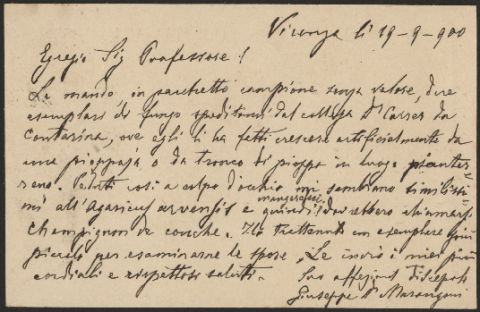 Vicenza lì 19-9-900
Egregio Sig Professore!
Le mando, in pacchetto campione senza valore, due
esemplari di fungo speditomi dal collega Dr Carrer da
Contarina, ove egli li ha fatti crescere artificialmente da
una pioppaja o da tronco di pioppo in luogo
reno. Veduti così a colpo d'occhio mi sembrano similissi
mi all'Agaricus arvensis e quindi mangerecci
champignon de couche. Ho trattenuto un esemplare più
piccolo per esaminarne le spore. Le invio i miei più
cordiali e rispettosi saluti.
Suo affezionat discepolo
Giuseppe Dr Marangoni